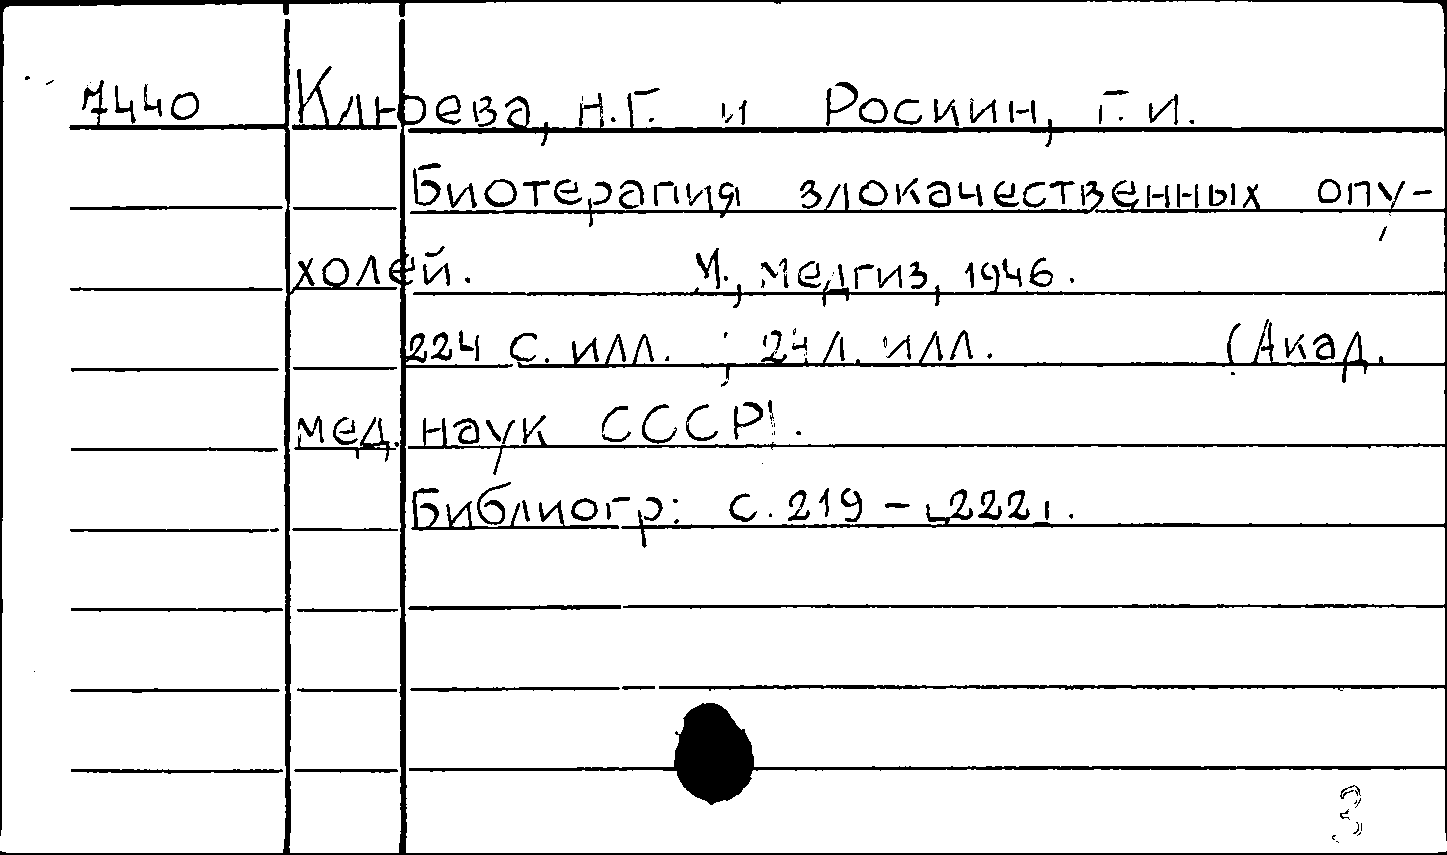 7440 Клюева, Н.Г. и Роскин, Г. И.
Биотерапия злокачественных опу-
холей. М., Медгиз, 1946.
224 с. илл. ; 24 л. илл. (Акад.
мед. наук СССР).
Библиогр: с. 219 - [222].
3